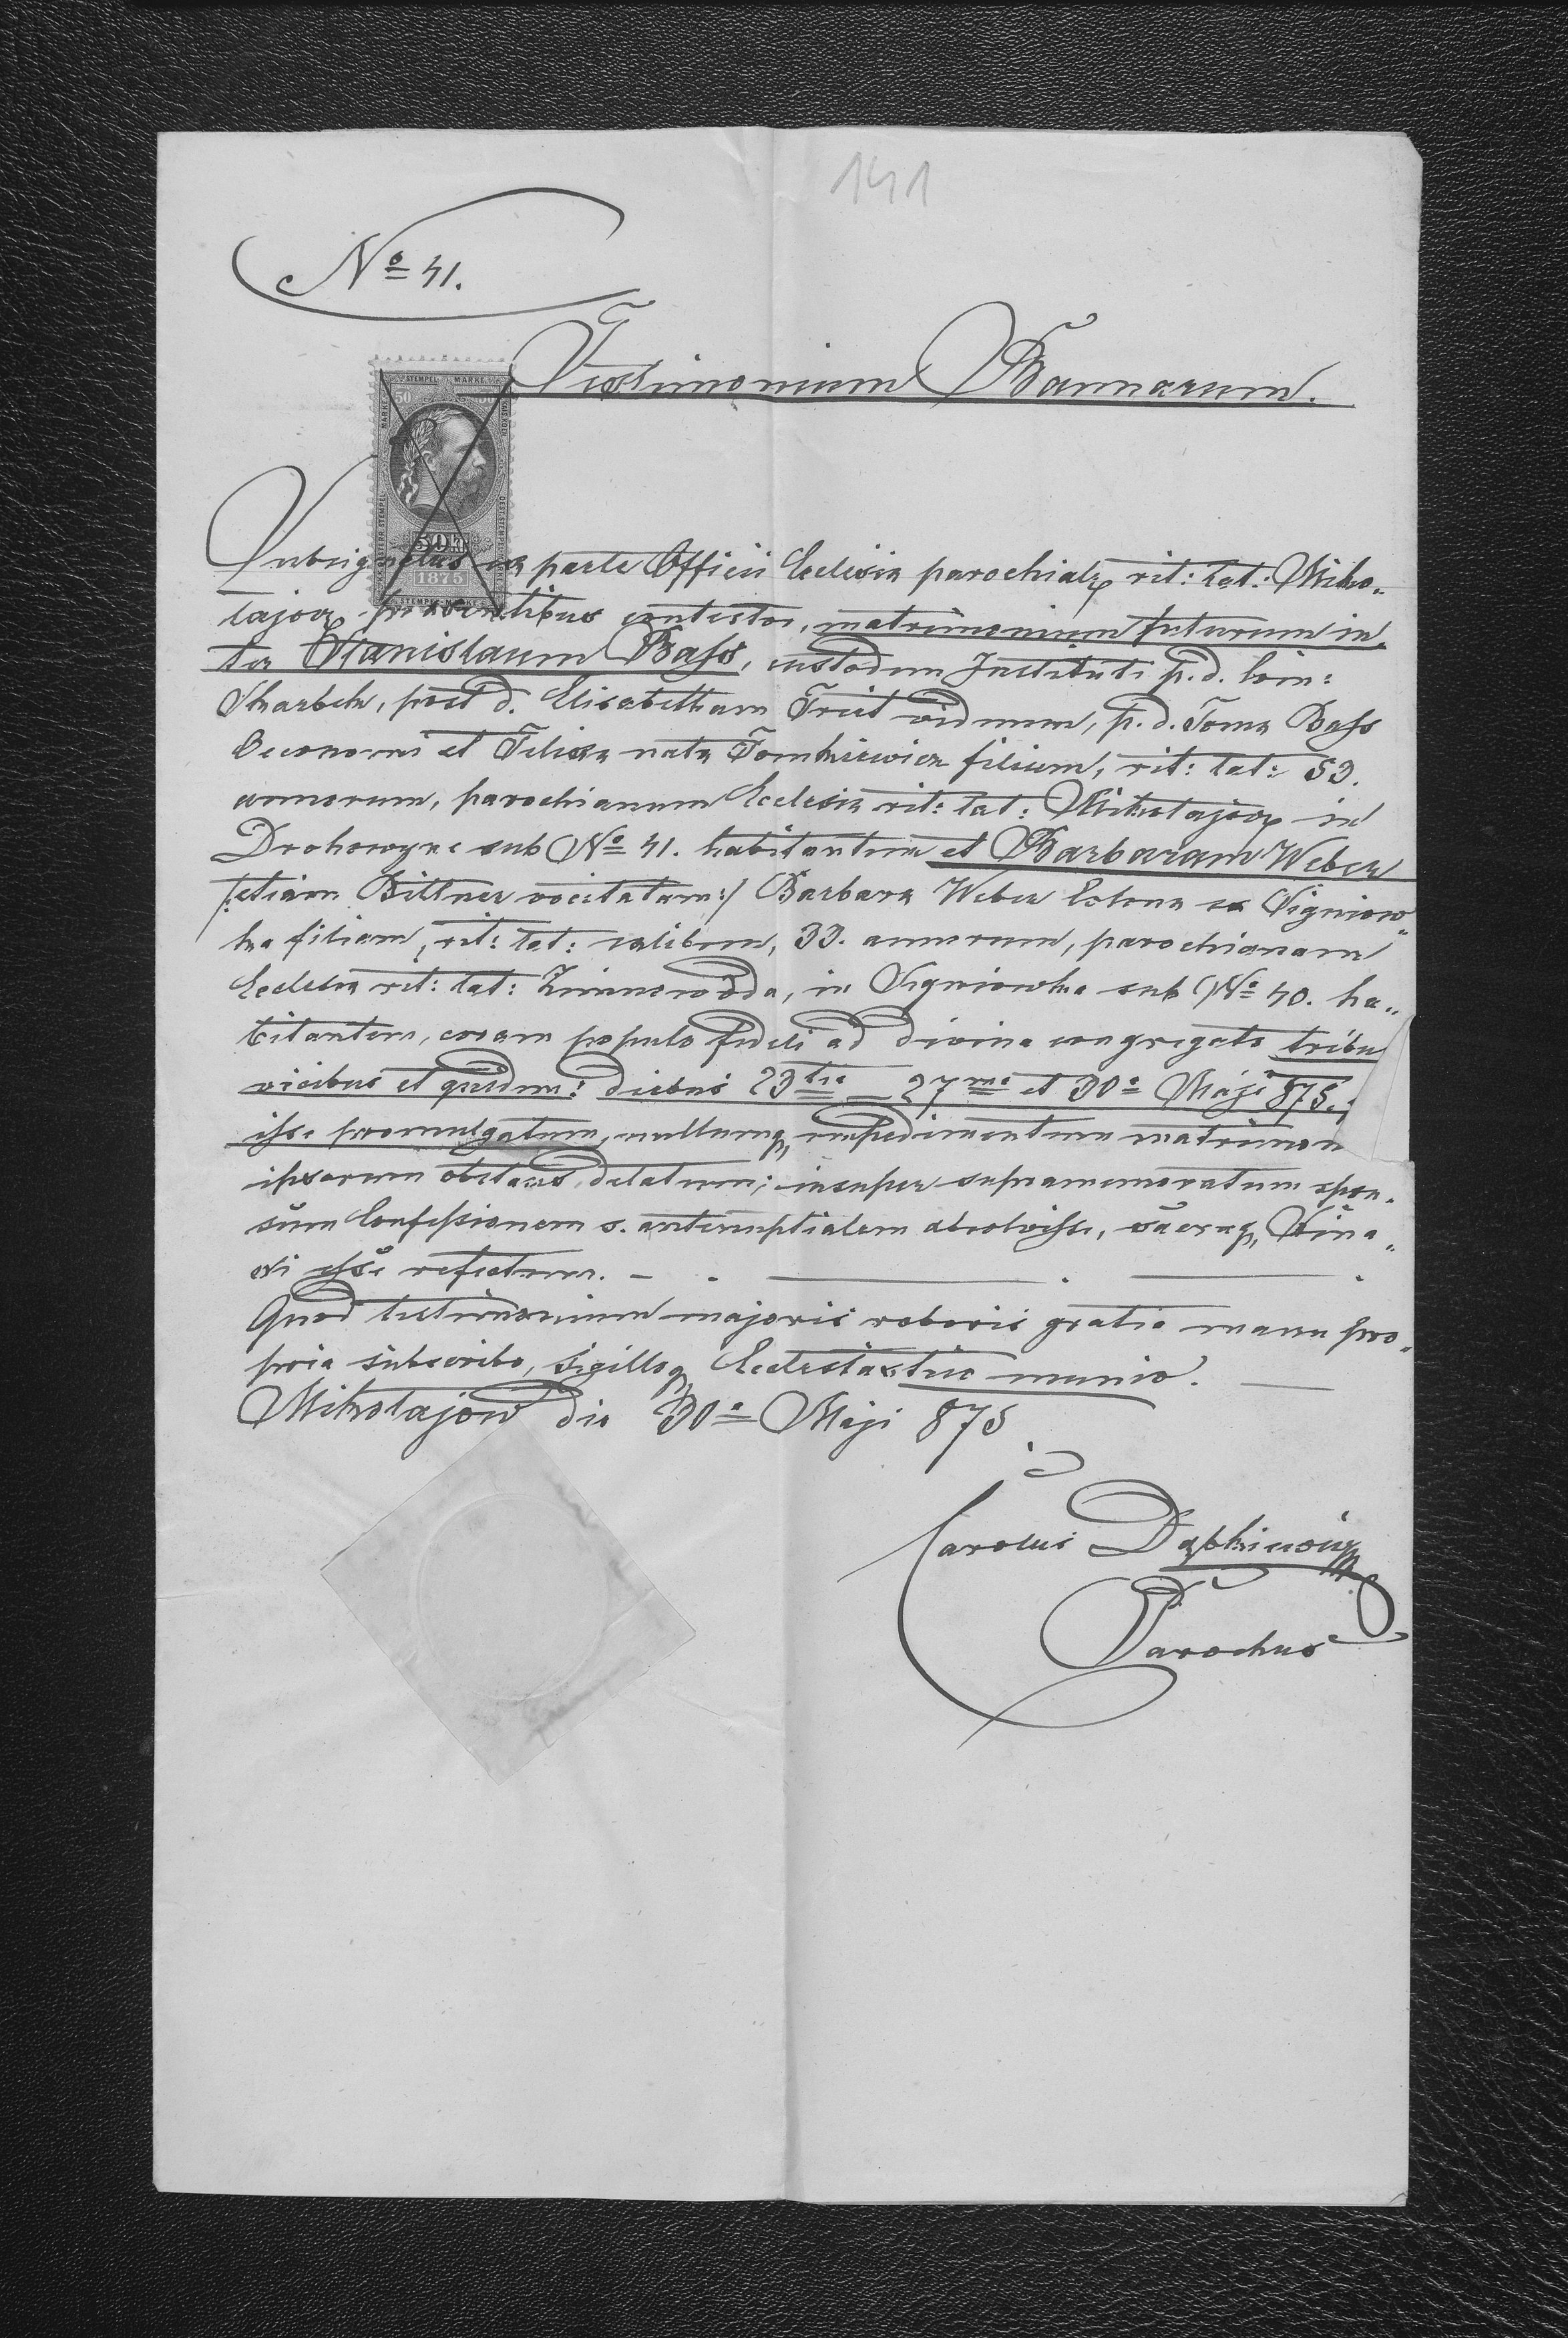 141
Nº 41.
Testimonium Bannorum.
STEMPEL MARKE
50
50 kr
1875
Subsignatus ex parte Officii Ecclesiæ parochialis rit: lat: Miko-
łajov præsentibus contestor, matrimonium futurum in-
ter Stanislaum Bass, custodem Instituti p. d. Com:
Skarbek, post d. Elisabetham Treit viduum, p. d. Toma Bass
Oeconomi et Felicia nata Tomkiewicz filium, rit: lat: 53.
annorum, parochianum Ecclesiæ rit: lat: Mikołajov in
Drohowyże sub Nº 41. habitantem et Barbaram Weber
/:etiam Bittner vocitatam:/ Barbara Weber Colona ex Signiow-
ka filiam, rit: lat: cælibem, 33. annorum, parochianam
Ecclesiæ rit: lat: Zimnowoda, in Signiowka sub Nº 40. ha-
bitantem, coram populo fideli ad divina congregato tribu
vicibus et quidem: diebus 23tia 27ma et 30a Maji 875.
esse promulgatum, nullumq, impedimentum matrimon
ipsorum obstans delatum; insuper supramemoratum spon-
sum Confessionem s. antenuptialem absolvisse, sacraq, Sina-
xi esse refectum.
Quod testimonium majoris roboris gratia manu pro-
pria subscribo, sigilloq, Ecclesiastico munio.
Mikołajow die 30a Maji 875
Carolus
Parochus